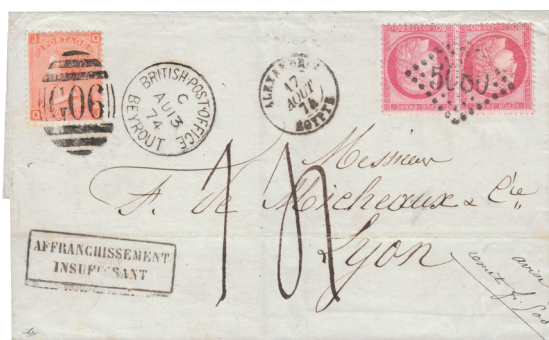 J Q
POSTAGE
Q
G06
BRITISH·POST·OFFICE
C
AU 13
74
BEYROUT
ALEXANDRIE
17
AOUT
74
EGYPTE
5080
Messieurs
F. de Micheaux & Cie
Lyon
AFFRANCHISSEMENT
INSUFFISANT